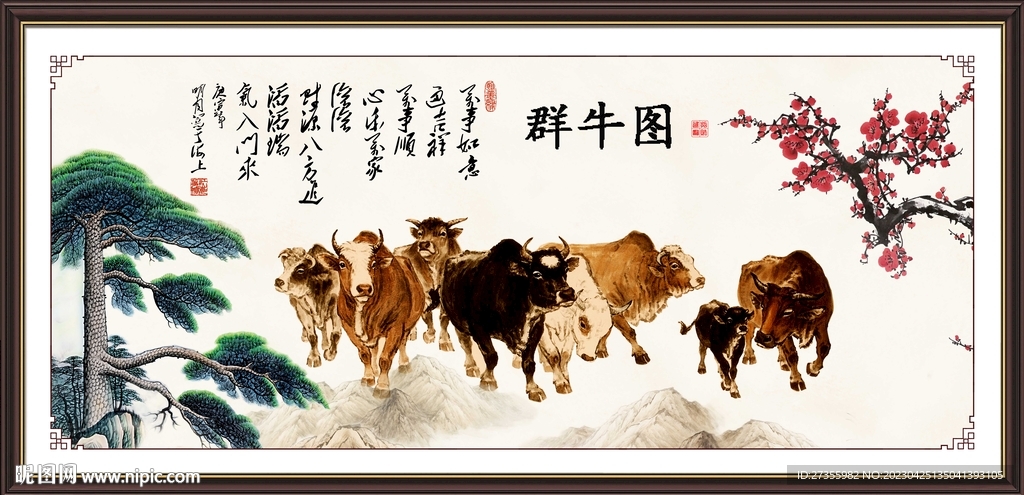 群牛图
萬事如意
吉祥
萬事順
心乐萬家
滚滚
财源八方进
滔滔瑞
氣入门来
庚寅
明月写于海上
昵图网 www.nipic.com
ID:27355982 NO:20230425135041393105